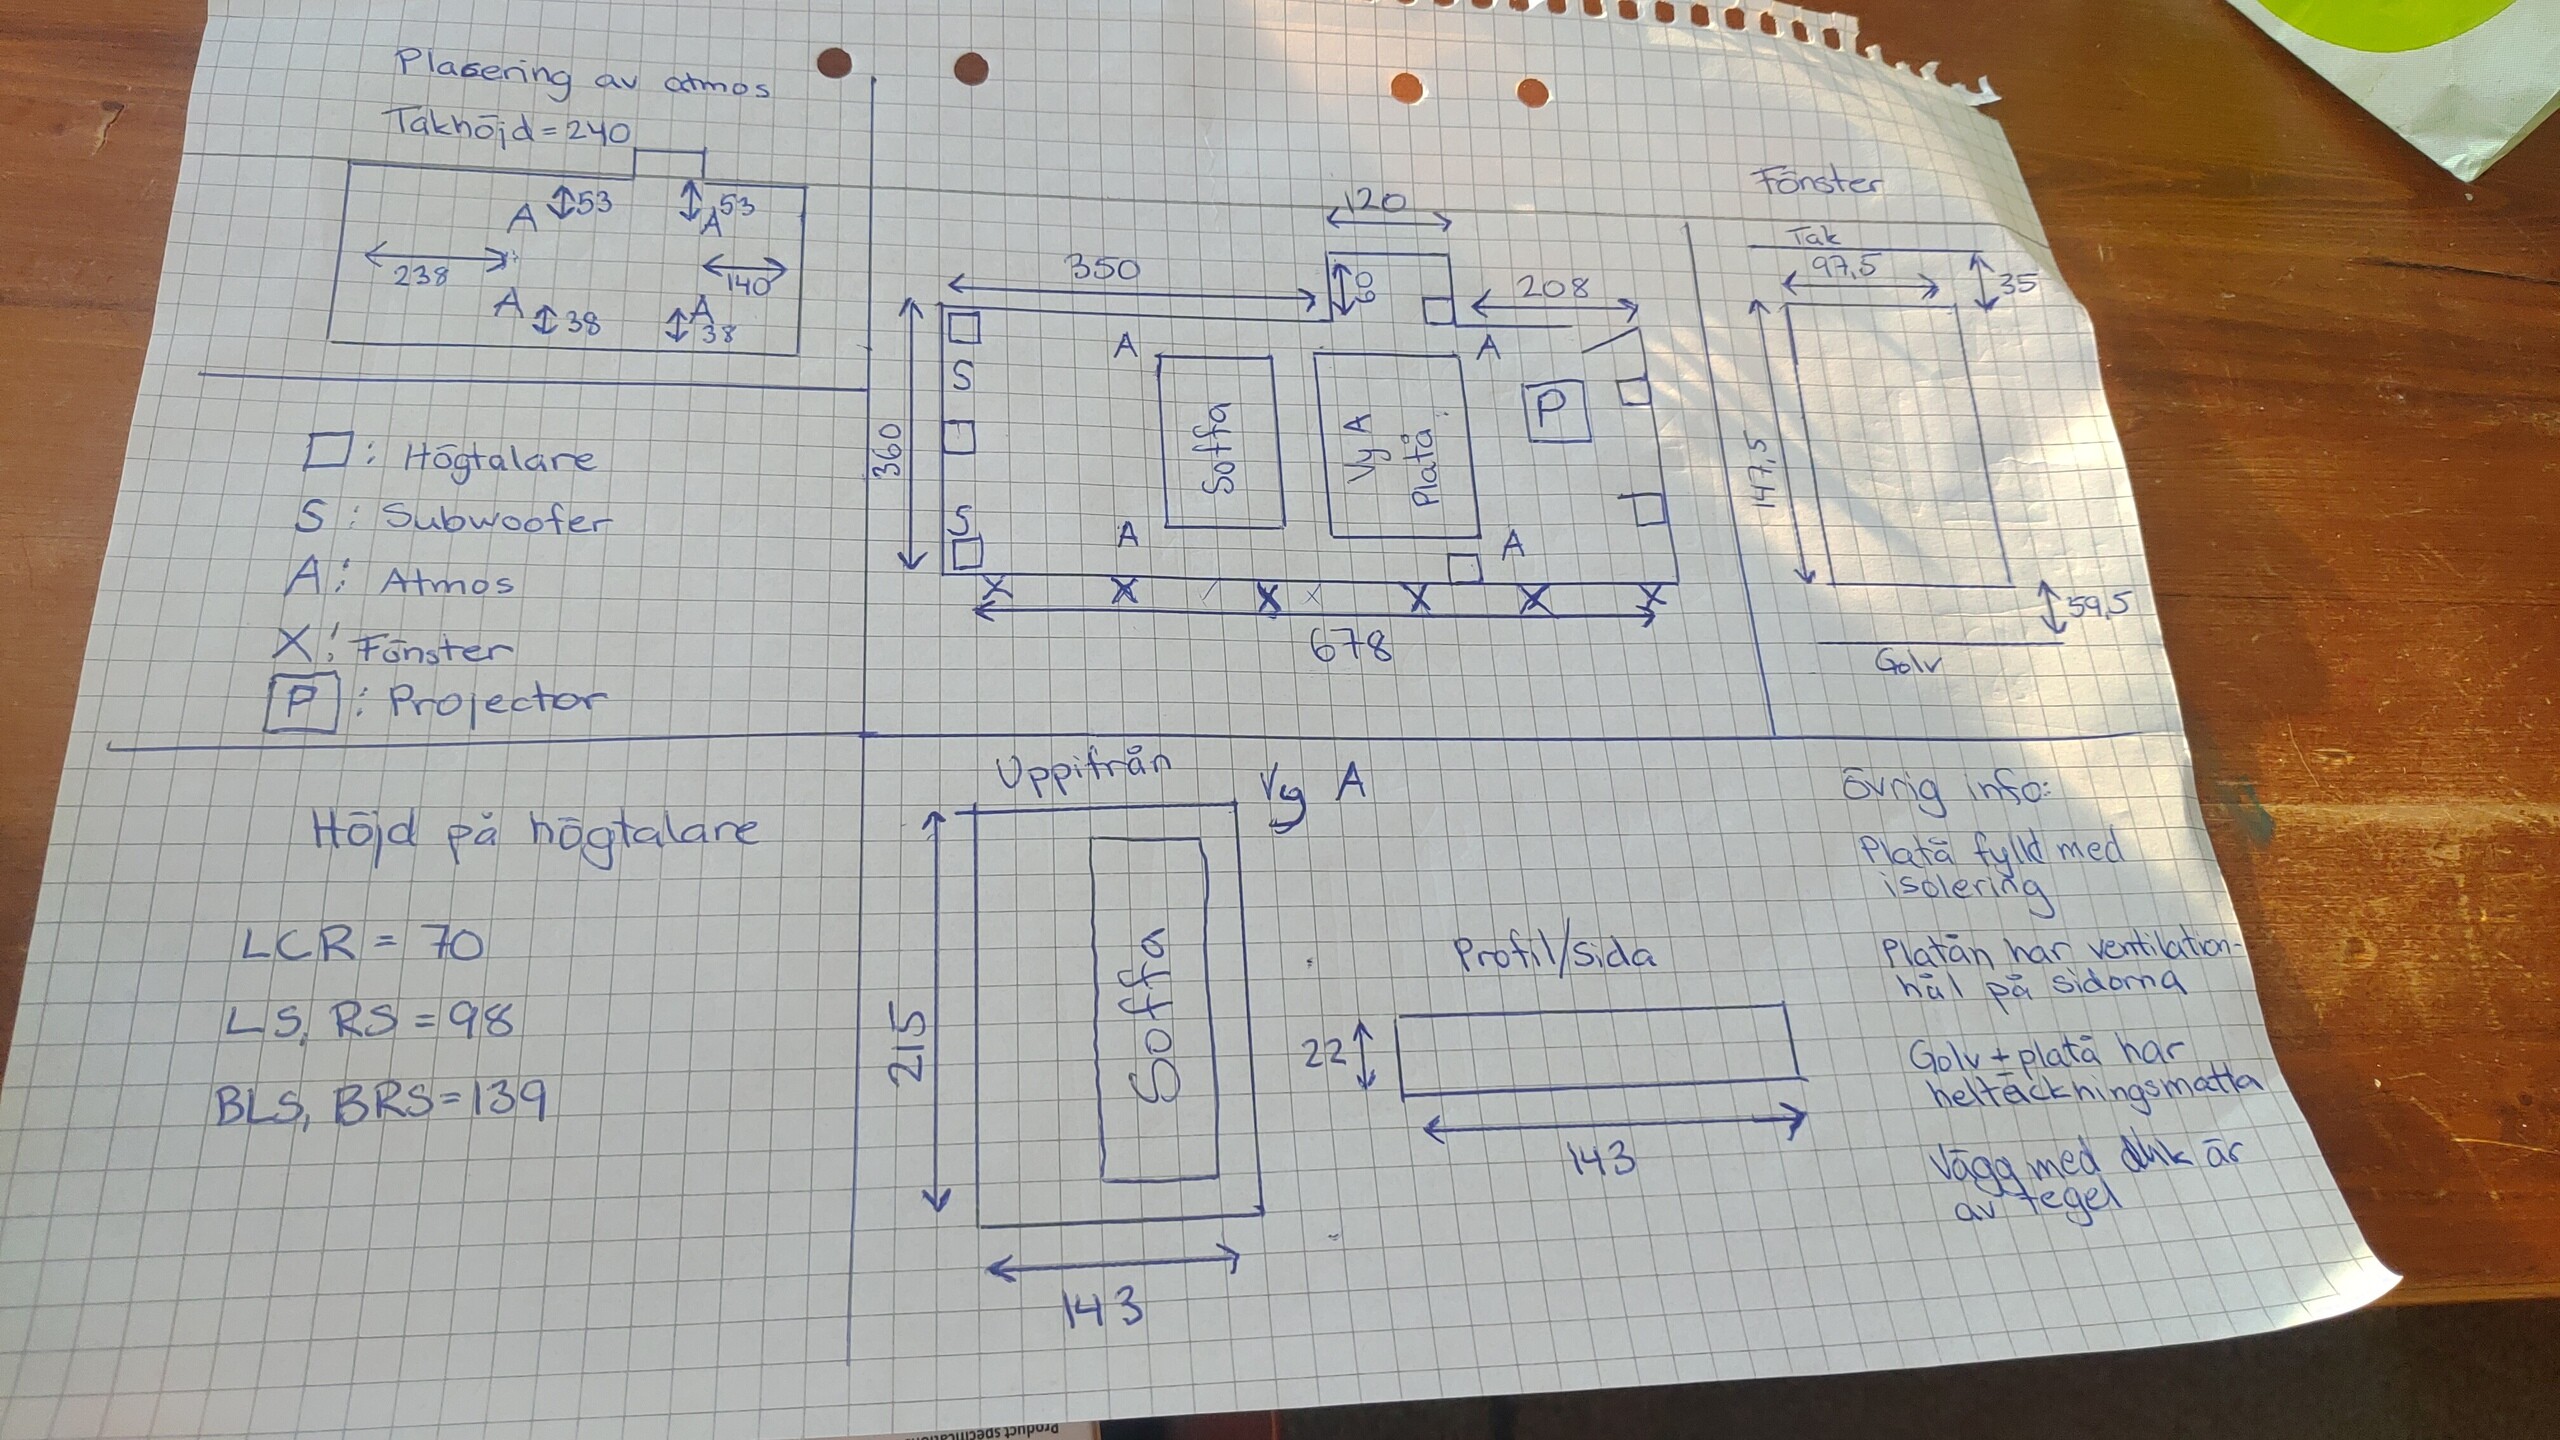 Placering av atmos
Takhöjd = 240
A ↕53
↕ 53
A
238
140
A ↕38
A
↕38
□: Högtalare
S: Subwoofer
A: Atmos
X: Fönster
P: Projector
120
350
60
208
360
S
S
A
A
A
A
Soffa
Vy A
Platå
P
X X X X X X X
678
Fönster
Tak
97,5
35
147,5
59,5
Golv
Höjd på högtalare
LCR = 70
LS, RS = 98
BLS, BRS = 139
Uppifrån
Vy A
215
Soffa
143
Profil/sida
22
143
Övrig info:
Platå fylld med
isolering
Platån har ventilation-
hål på sidorna
Golv + platå har
heltäckningsmatta
Vägg med duk är
av tegel
Product specification